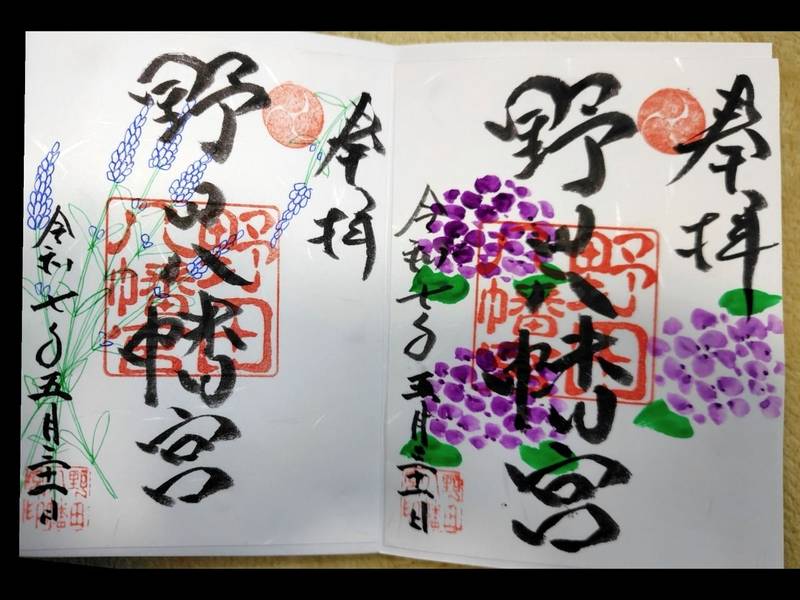 奉拝
野田八幡宮
令和七年五月三十一日
野田
八幡宮
奉拝
野田八幡宮
令和七年五月三十一日
野田
八幡宮